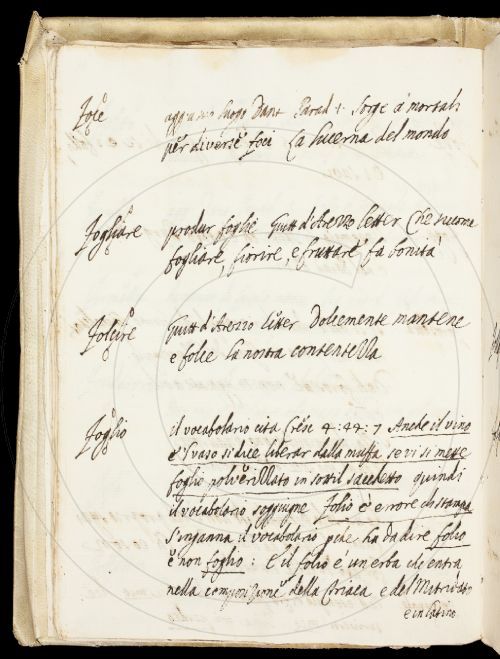 Foce
luogo Dant Parad 1. Sorge a' mortali
per diverse foci La lucerna del mondo
Fogliare
produr foglie Guitt d'Arezzo letter Che siccome
fogliare, fiorire, e fruttare fa bonità
Folcire
Guitt d'Arezzo letter Dolcemente mantene
e folce la nostra contentezza
Foglio
il vocabolario cita Cresc 4: 44: 7 Anche il vino
e 'l vaso si dice liberar dalla muffa se vi si mette
foglio polverizzato in sottil sacchetto quindi
il vocabolario soggiugne folio è errore di stampa
S'inganna il vocabolario ha da dire folio
e non foglio: E il folio é un erba che entra
nella composizione della Triaca e del Mitridato
e in latino